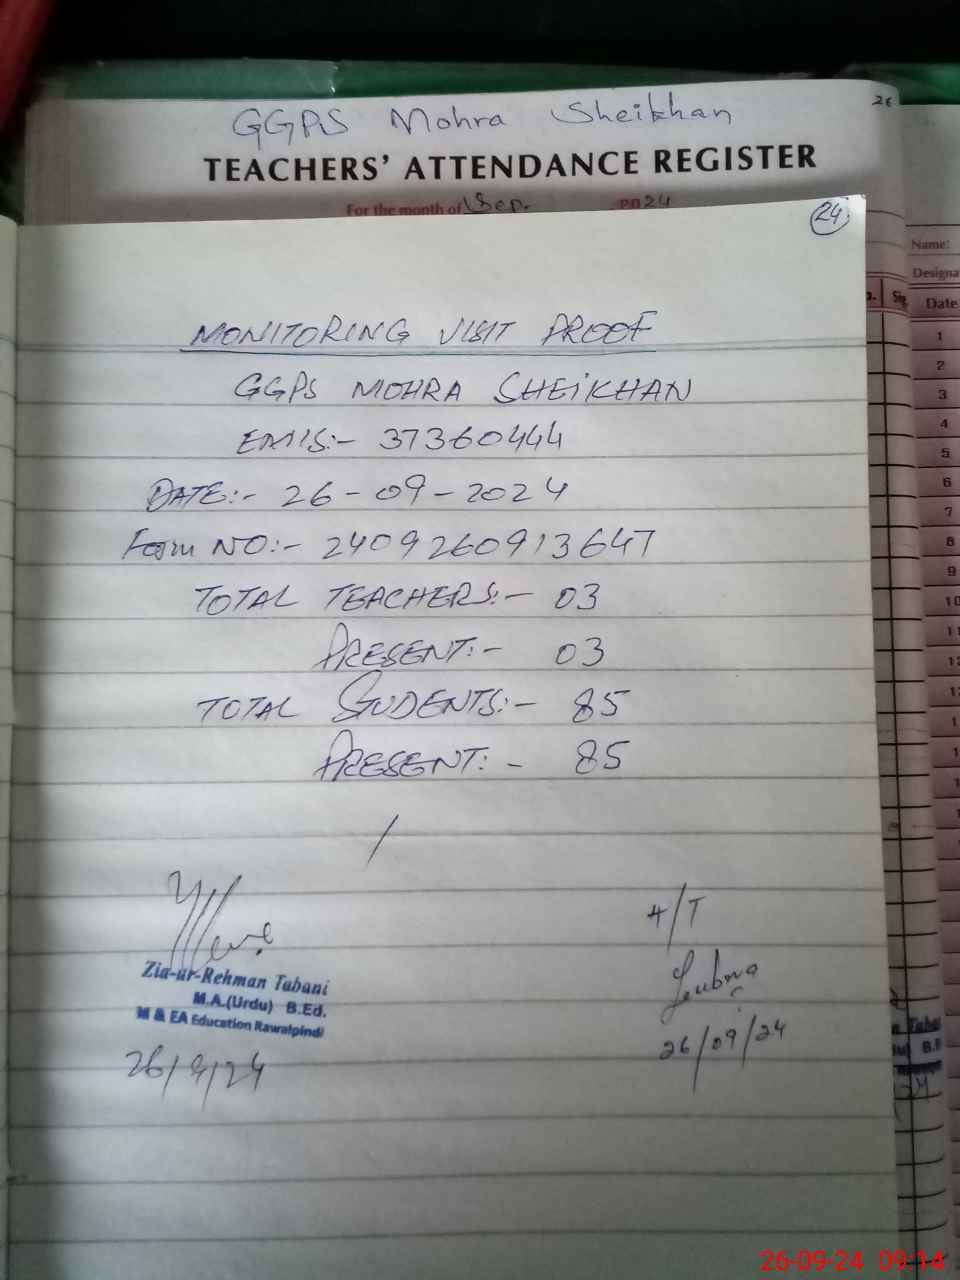 26
GGPS Mohra Sheikhan
TEACHERS' ATTENDANCE REGISTER
For the month of Sep. 2024
24
MONITORING VISIT PROOF
GGPS MOHRA SHEIKHAN
EMIS:- 37360444
DATE:- 26-09-2024
Form NO:- 2409260913647
TOTAL TEACHERS:- 03
PRESENT:- 03
TOTAL STUDENTS:- 85
PRESENT:- 85
Zia-ur-Rehman Tabani
M.A.(Urdu) B.Ed.
M & EA Education Rawalpindi
26/9/24
H/T
Lubna
26/09/24
Name:
Designa
Date
Sig.
1
2
3
4
5
6
7
8
9
10
11
26-09-24 09:14